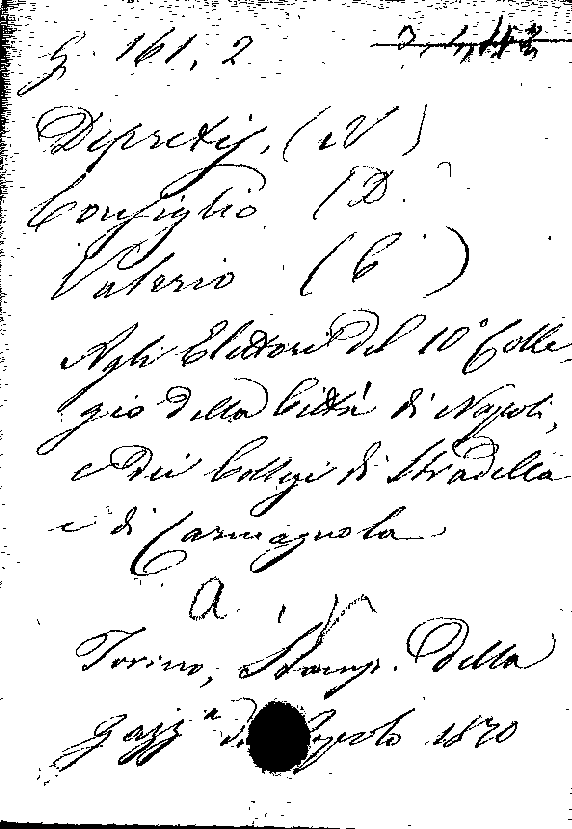 G. 161, 2
Depretis, (N)
Consiglio (D.
Valerio (C)
Agli Elettori del 10° Colle-
gio della Città di Napoli,
e dei Collegi di Stradella
e di Carmagnola
a.
Torino, Stamp. della
Gazz.a del Popolo 1870